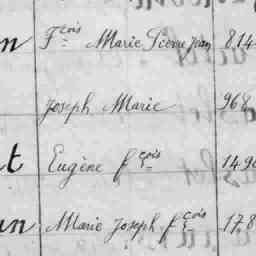 n Fçois Marie Pierre Jean 814
Joseph Marie 968
t Eugène fçois 1490
un Marie Joseph fçois 178